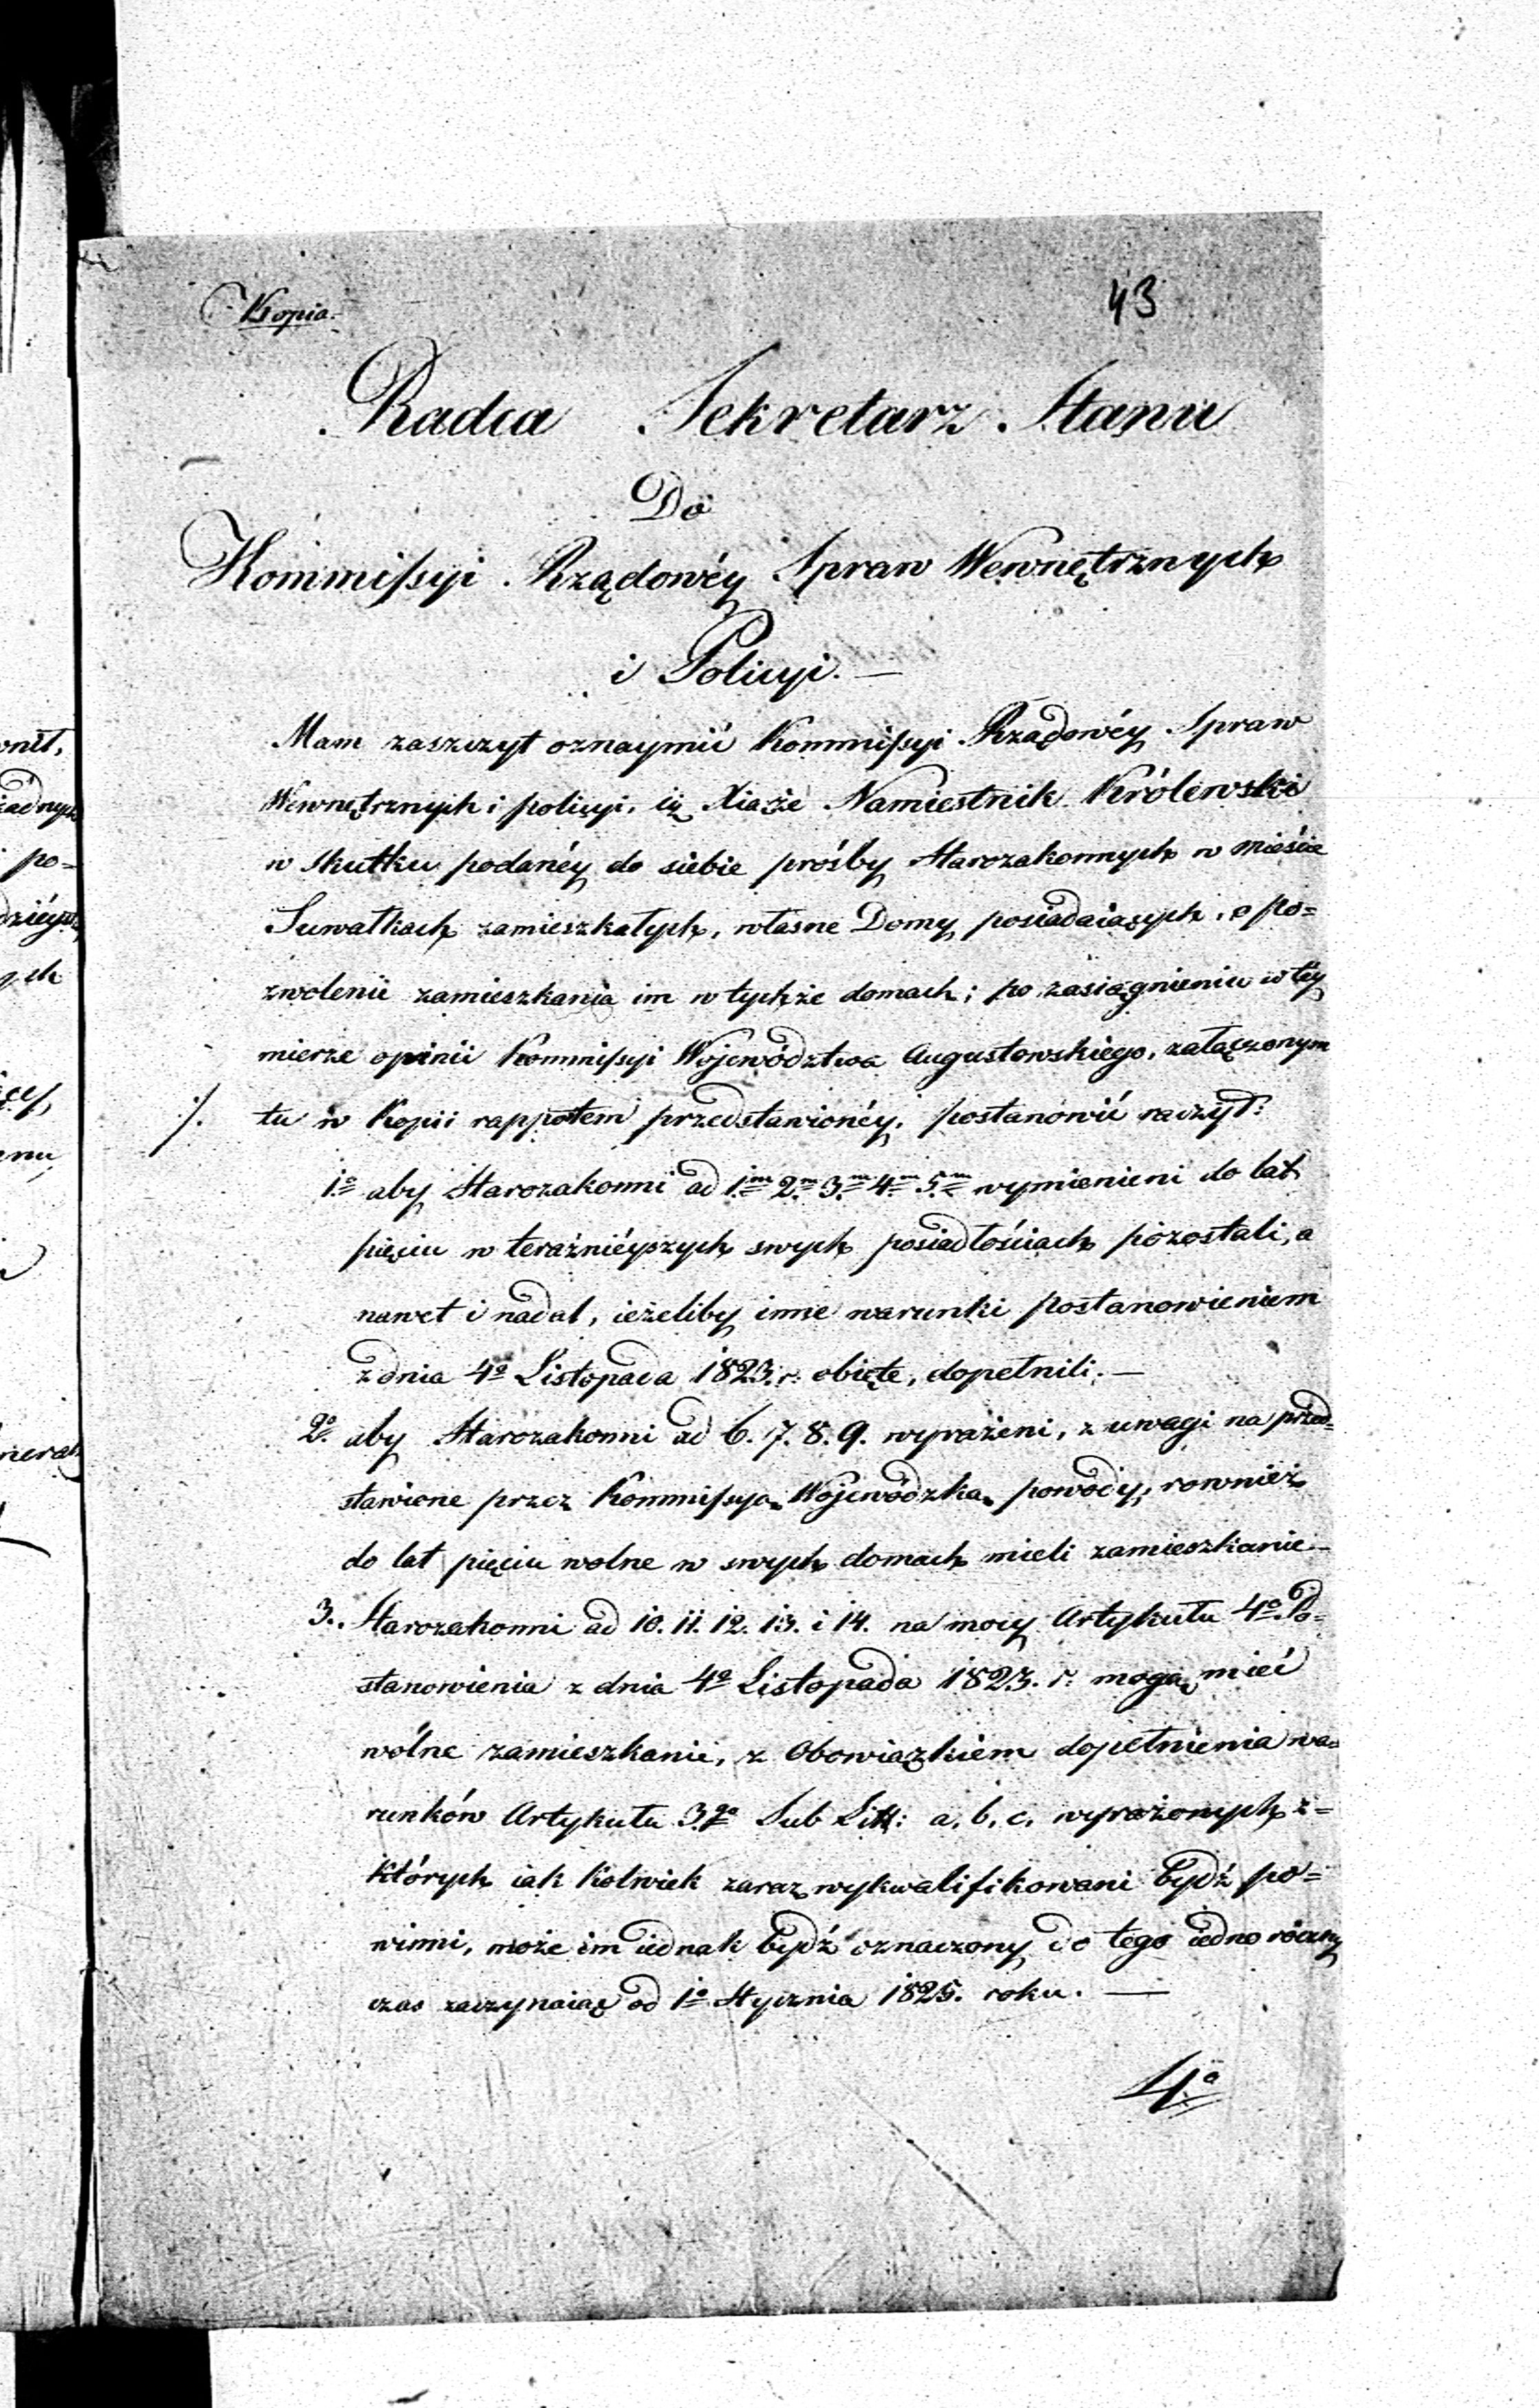 Kopia.
43
Radca Sekretarz Stanu
Do
Kommissyi Rządowéy Spraw Wewnętrznych
i Policyi. —
Mam zaszczyt oznaymić Kommissyi Rządowéy Spraw
Wewnętrznych i policyi, iż Xiąże Namiestnik Królewski
w skutku podanéy do siebie prośby Starozakonnych w mieście
Suwałkach zamieszkałych, własne Domy posiadaiących, o po=
zwolenie zamieszkania im w tychże domach; po zasiągnieniu w téy
mierze opinii Kommissyi Województwa Augustowskiego, załączonym
./. tu w Kopii rappotem przedstawionéy, postanowić raczył:
1.o aby Starozakonni ad 1.m 2.m 3.m 4.m 5.m wymienieni do lat
pięciu w teraźnieyszych swych posiadłościach pozostali, a
nawet i nadal, ieżeliby inne warunki postanowieniem
z dnia 4o Listopada 1823. r. obięte, dopełnili. —
2o. aby Starozakonni ad 6. 7. 8. 9. wyrażeni, z uwagi na przed=
stawione przez Kommissyą Wojewódzką powody, rownież
do lat pięciu wolne w swych domach mieli zamieszkanie —
3.. Starozakonni ad 10. 11. 12. 13. i 14. na mocy Artykułu 4o. Po=
stanowienia z dnia 4o Listopada 1823. r. mogą mieć
wólne zamieszkanie, z Obowiązkiem dopełnienia wa=
runków Artykułu 3.go Sub Litt: a. b. c. wyrażonych z=
których iak kolwiek zaraz wykwalifikowani bydź po=
winni, może im iednak bydź oznaczony do tego iedno roczny
czas zaczynaiąc od 1o Stycznia 1825. roku. —
4o